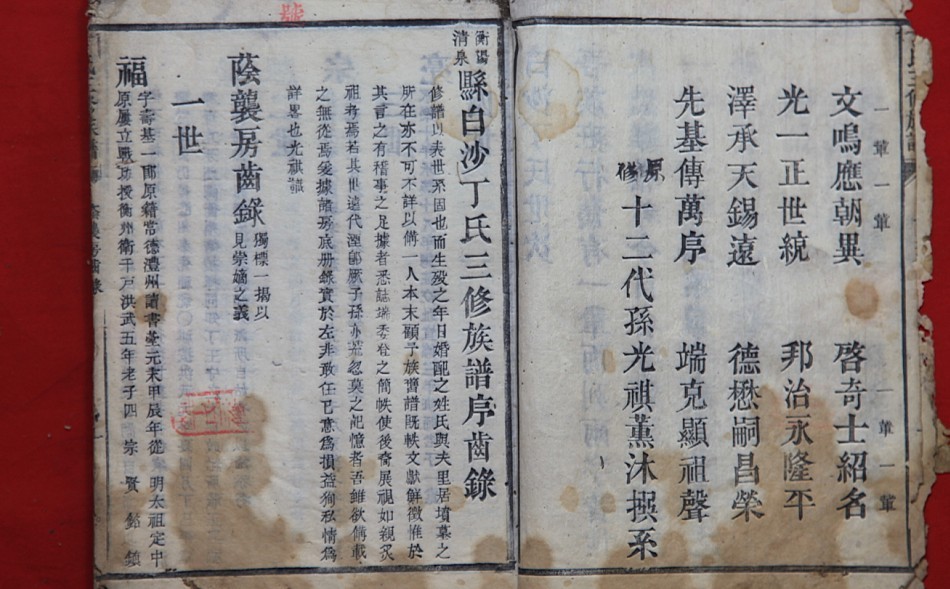 文鳴應朝異 啓奇士紹名
光一正世統 邦治永隆平
澤承天錫遠 德懋嗣昌榮
先基傳萬序 端克顯祖聲
原修十二代孫光祺薰沐撰系
衡陽清泉縣白沙丁氏三修族譜序齒錄
修譜以表世系因也而生歿之年日婚配之姓氏與夫里居墳墓之
所在亦不可不詳以備一人本末顧予族舊譜既軼文獻鮮徵惟於
其言之有稽事之足據者悉誌端委登之簡帙使後裔展視如親炙
祖考焉若其世遠代湮即厥子孫亦荒忽莫之記憶者吾雖欲備載
之無從焉爰據諸房底册錄實於左非敢任已意為損益狥私情為
詳畧也光祺識
蔭襲房齒錄 獨標一揭以
見崇嫡之義
一世
福 字壽基一郎原籍常德澧州讀書臺元末甲辰年從明太祖定中
原屢立戰功授衡州衛千戸洪武五年老子四 宗 賢 鉛 鎮